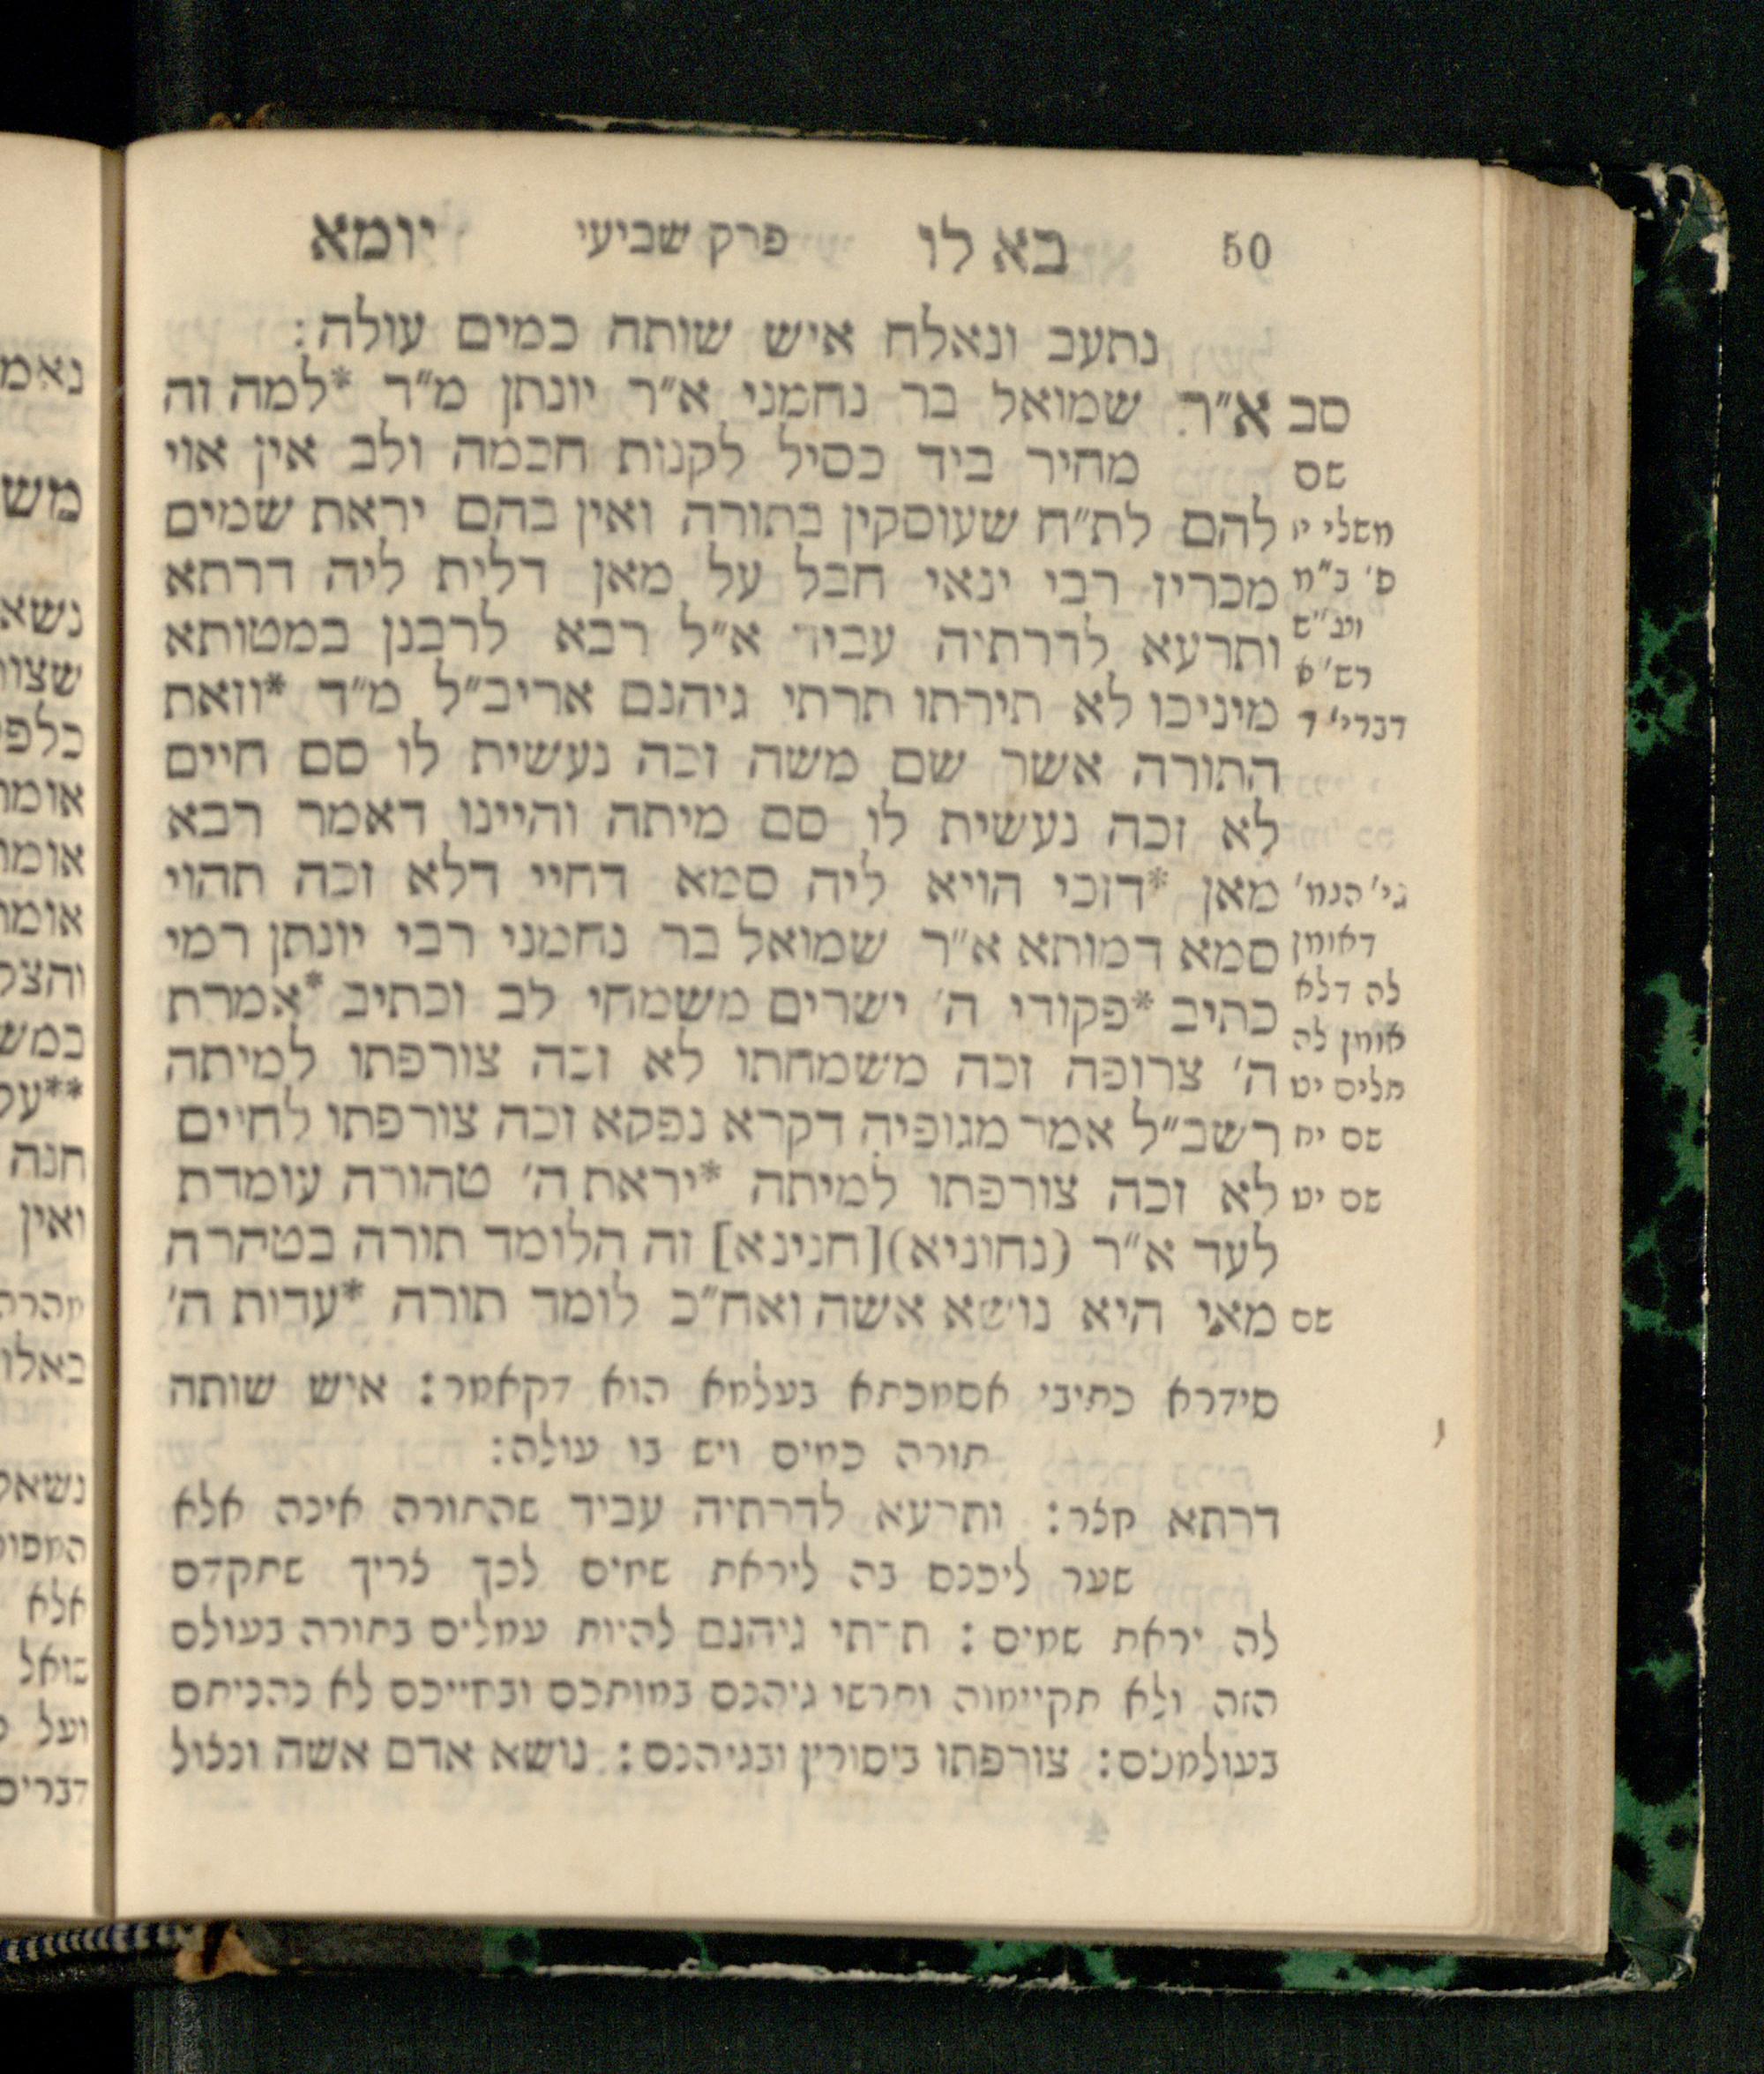 50 בא לו פרק שביעי יומא
נתעב ונאלח איש שותה כמים עולה:
סב א״ר שמואל בר נחמני א״ר יונתן מ״ד *למה זה
שם מחיר ביד כסיל לקנות חכמה ולב אין אוי
משלי יז להם לת״ח שעוסקין בתורה ואין בהם יראת שמים
מכריז רבי ינאי חבל על מאן דלית ליה דרתא
ותרעא לדרתיה עביד א״ל רבא לרבנן במטותא
מיניכו לא תירתו תרתי גיהנם אריב״ל מ״ד *וזאת
דברי׳ ד
התורה אשר שם משה זכה נעשית לו סם חיים
לא זכה נעשית לו סם מיתה והיינו דאמר רבא
מאן *דזכי הויא ליה סמא דחיי דלא זכה תהוי
סמא דמותא א״ר שמואל בר נחמני רבי יונתן רמי
דאומן
לה דלא
כתיב *פקודי ה׳ ישרים משמחי לב וכתיב *אמרת
אומן לה
ה׳ צרופה זכה משמחתו לא זכה צורפתו למיתה
תלים יט
שם יח רשב״ל אמר מגופיה דקרא נפקא זכה צורפתו לחיים
שם יט לא זכה צורפתו למיתה *יראת ה׳ טהורה עומדת
לעד א״ר (נחוניא)[חנינא] זה הלומד תורה בטהרה
שם מאי היא נושא אשה ואח״כ לומד תורה *עדות ה׳
סידרא כתיבי אסמכתא בעלמא הוא דקאמר: איש שותה
תורה כמים ויש בו עולה:
דרתא חצר: ותרעא לדרתיה עביד שהתורה אינה אלא
שער ליכנס בה ליראת שמים לכך צריך שתקדם
לה יראת שמים: תרתי גיהנם להיות עמלים בתורה בעולם
הזה ולא תקיימוה ותרשי גיהנם במותכם ובחייכם לא נהניתם
בעולמכם: צורפתו ביסורין ובגיהנם: נושא אדם אשה ונצול